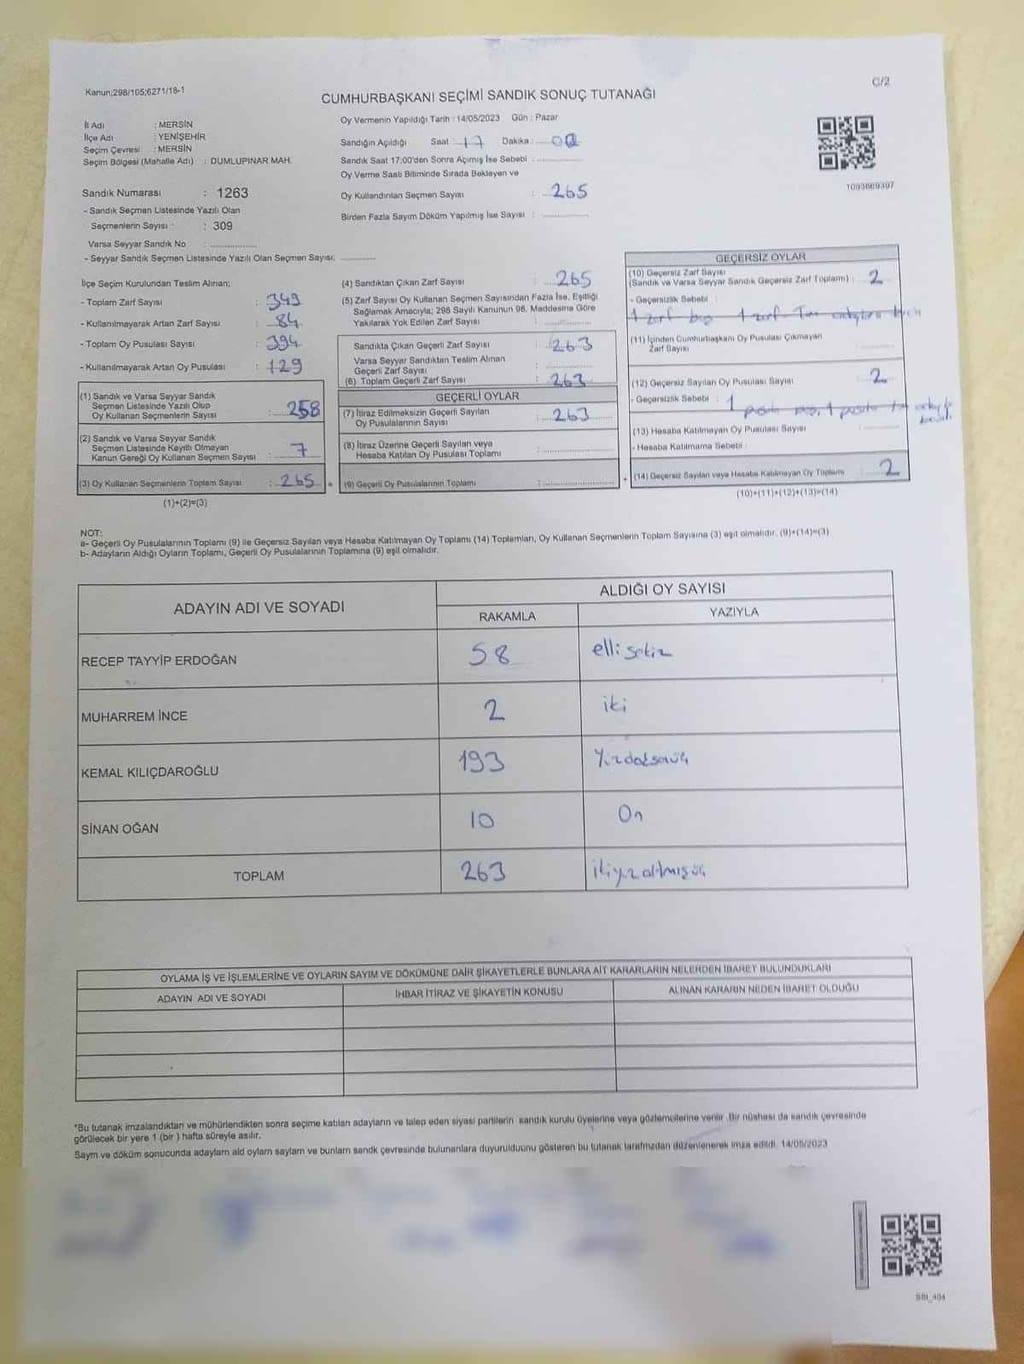 Kanun;298/105;6271/18-1
C/2
CUMHURBAŞKANI SEÇİMİ SANDIK SONUÇ TUTANAĞI
İl Adı : MERSİN
İlçe Adı : YENİŞEHİR
Seçim Çevresi : MERSİN
Seçim Bölgesi (Mahalle Adı) : DUMLUPINAR MAH.
Sandık Numarası : 1263
- Sandık Seçmen Listesinde Yazılı Olan
Seçmenlerin Sayısı : 309
Varsa Seyyar Sandık No :
- Seyyar Sandık Seçmen Listesinde Yazılı Olan Seçmen Sayısı:
Oy Vermenin Yapıldığı Tarih : 14/05/2023 Gün : Pazar
Sandığın Açıldığı Saat 17 Dakika : 00
Sandık Saat 17:00'den Sonra Açımış İse Sebebi :
Oy Verme Saati Bitiminde Sırada Bekleyen ve
Oy Kullandırılan Seçmen Sayısı : 265
Birden Fazla Sayım Döküm Yapılmış İse Sayısı :
1093669397
İlçe Seçim Kurulundan Teslim Alınan;
- Toplam Zarf Sayısı : 349
- Kullanılmayarak Artan Zarf Sayısı : 84
- Toplam Oy Pusulası Sayısı : 394
- Kullanılmayarak Artan Oy Pusulası : 129
(1) Sandık ve Varsa Seyyar Sandık
Seçmen Listesinde Yazılı Olup
Oy Kullanan Seçmenlerin Sayısı : 258
(2) Sandık ve Varsa Seyyar Sandık
Seçmen Listesinde Kayıtlı Olmayan
Kanun Gereği Oy Kullanan Seçmen Sayısı : 7
(3) Oy Kullanan Seçmenlerin Toplam Sayısı : 265
(1)+(2)=(3)
(4) Sandıktan Çıkan Zarf Sayısı : 265
(5) Zarf Sayısı Oy Kullanan Seçmen Sayısından Fazla İse, Eşitliği
Sağlamak Amacıyla; 298 Sayılı Kanunun 98. Maddesine Göre
Yakılarak Yok Edilen Zarf Sayısı :
Sandıkta Çıkan Geçerli Zarf Sayısı : 263
Varsa Seyyar Sandıktan Teslim Alınan
Geçerli Zarf Sayısı :
(6) Toplam Geçerli Zarf Sayısı : 263
GEÇERLİ OYLAR
(7) İtiraz Edilmeksizin Geçerli Sayılan
Oy Pusulalarının Sayısı : 263
(8) İtiraz Üzerine Geçerli Sayılan veya
Hesaba Katılan Oy Pusulası Toplamı :
(9) Geçerli Oy Pusulalarının Toplamı :
GEÇERSİZ OYLAR
(10) Geçersiz Zarf Sayısı
(Sandık ve Varsa Seyyar Sandık Geçersiz Zarf Toplamı) : 2
- Geçersizlik Sebebi :
1 zarf boş 1 zarf
(11) İçinden Cumhurbaşkanı Oy Pusulası Çıkmayan
Zarf Sayısı
(12) Geçersiz Sayılan Oy Pusulası Sayısı : 2
- Geçersizlik Sebebi : 1
(13) Hesaba Katılmayan Oy Pusulası Sayısı :
- Hesaba Katılmama Sebebi :
(14) Geçersiz Sayılan veya Hesaba Katılmayan Oy Toplamı : 2
(10)+(11)+(12)+(13)=(14)
NOT:
a- Geçerli Oy Pusulalarının Toplamı (9) ile Geçersiz Sayılan veya Hesaba Katılmayan Oy Toplamı (14) Toplamları, Oy Kullanan Seçmenlerin Toplam Sayısına (3) eşit olmalıdır. (9)+(14)=(3)
b- Adayların Aldığı Oyların Toplamı, Geçerli Oy Pusulalarının Toplamına (9) eşit olmalıdır.
ADAYIN ADI VE SOYADI
ALDIĞI OY SAYISI
RAKAMLA YAZIYLA
RECEP TAYYİP ERDOĞAN 58 elli sekiz
MUHARREM İNCE 2 iki
KEMAL KILIÇDAROĞLU 193 Yüzdoksanüç
SİNAN OĞAN 10 On
TOPLAM 263 ikiyüzaltmışüç
OYLAMA İŞ VE İŞLEMLERİNE VE OYLARIN SAYIM VE DÖKÜMÜNE DAİR ŞİKAYETLERLE BUNLARA AİT KARARLARIN NELERDEN İBARET BULUNDUKLARI
ADAYIN ADI VE SOYADI İHBAR İTİRAZ VE ŞİKAYETİN KONUSU ALINAN KARARIN NEDEN İBARET OLDUĞU
*Bu tutanak imzalandıktan ve mühürlendikten sonra seçime katılan adayların ve talep eden siyasi partilerin sandık kurulu üyelerine veya gözlemcilerine verilir. Bir nüshası da sandık çevresinde
görülecek bir yere 1 (bir ) hafta süreyle asılır.
Sayım ve döküm sonucunda adayların ald oyların sayları ve bunların sandk çevresinde bulunanlara duyurulduunu gösteren bu tutanak tarafımzdan düzenlenerek imza edildi. 14/05/2023